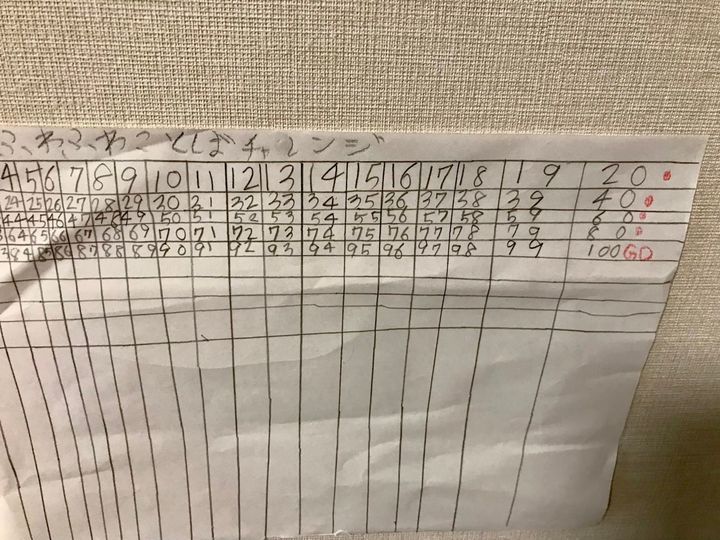 ふわふわことばチャレンジ
4 5 6 7 8 9 10 11 12 13 14 15 16 17 18 19 20
24 25 26 27 28 29 30 31 32 33 34 35 36 37 38 39 40
44 45 46 47 48 49 50 51 52 53 54 55 56 57 58 59 60
64 65 66 67 68 69 70 71 72 73 74 75 76 77 78 79 80
84 85 86 87 88 89 90 91 92 93 94 95 96 97 98 99 100GD